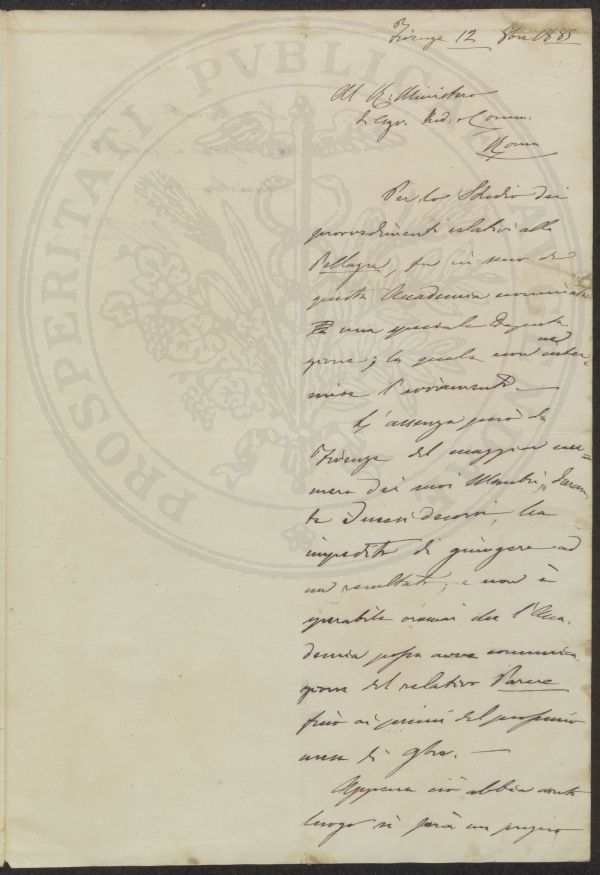 Firenze 12 8bre 1885
Al R. Ministero
di Agr. Ind. e Comm.
Roma
Per lo Studio dei
provvedimenti relativi alla
Pellagra, fu in seno di
questa Accademia nominata
una speciale Deputa
zione; la quale non ne inter-
mise l'avviamento. —
L'assenza però da
Firenze del maggior nu=
mero dei suoi Membri, duran
te i mesi decorsi, ha
impedito di giungere ad
un resultato; e non è
sperabile oramai che l'Acca
demia possa avere comunica
zione del relativo Parere
fino ai primi del prossimo
mese di 9bre. —
Appena ciò abbia avuto
luogo si farà un pregio
PROSPERITATI PVBLICAE AVGENDAE